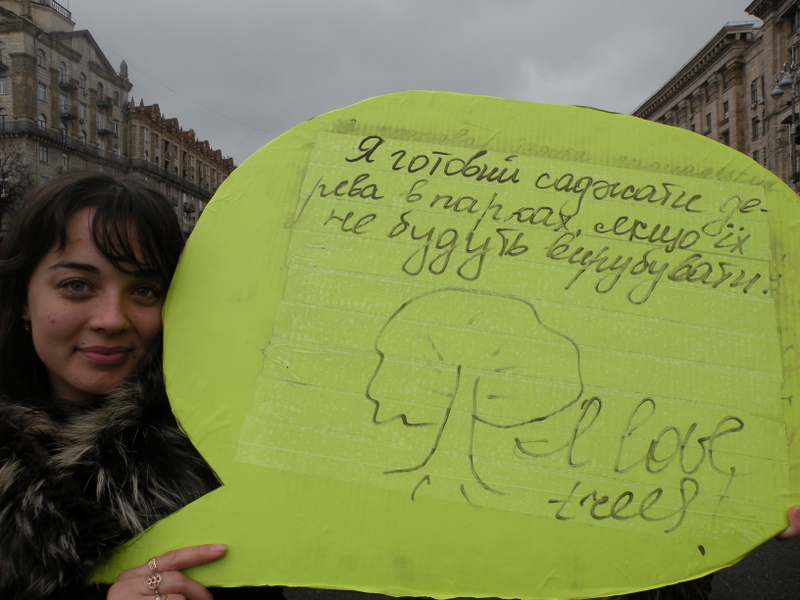 Я готовий саджати де-
рева в парках, якщо їх
не будуть вирубувати!
I love
trees!